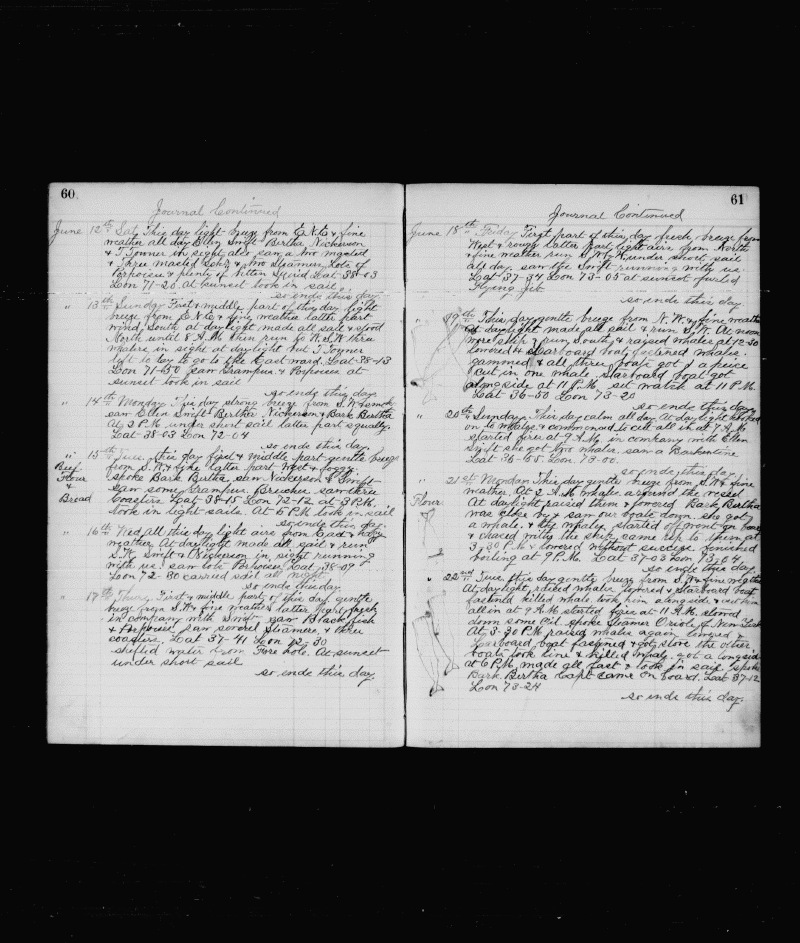 60
Journal Continued
June 12th Sat This day light breeze from E.N.E. & fine
weather all day Ellen Swift Bertha Nickerson
& T Towner in sight also saw a two masted
& three masted Schr & two Steamers Lots of
Porpoises & plenty of Kitten Squid Lat 38-03
Lon 71-20 At sunset took in sail
so ends this day
" 13th Sunday First & middle part of this day light
breeze from E.N.E. & fine weather latter part
wind South at daylight made all sail & stood
North until 8 A.M. then run to W.S.W. three
whalers in sight at daylight but T Towner
left to day to go to the Eastward. Lat 38-13
Lon 71-50 saw Grampus & Porpoises at
sunset took in sail
so ends this day
" 14th Monday This day strong breeze from S.W. & smoky
saw Ellen Swift Bertha Nickerson & Bark Bertha
At 2 P.M. under short sail latter part squally.
Lat 38-03 Lon 72-04
so ends this day
" 15th Tues. this day first & middle part gentle breeze
Beef Flour & Bread
from S.W. & fine latter part West & foggy.
spoke Bark Bertha, saw Nickerson & Swift
saw some Grampus. Breacher saw three
coasters Lat 38-15 Lon 72-12 at 3 P.M.
took in light sails. At 6 P.M. took in sail
so ends this day
" 16th Wed all this day light airs from East & hazy
weather At daylight made all sail & run
S.W. Swift & Nickerson in sight running
with us. saw lots Porpoises Lat 38-09
Lon 72-30 carried sail all night
so ends this day
" 17th Thurs, First & middle part of this day gentle
breeze from S.W. & fine weather latter Night fresh
in company with Swift saw Blackfish
& Porpoises saw several Steamers, & three
coasters. Lat 37-41 Lon 72-30
shifted water from Fore hole. At sunset
under short sail
so ends this day.
61
Journal Continued
June 18th Friday First part of this day fresh breeze from
West & rough latter part light airs from North
& fine weather run S.W. under short sail
all day. saw the Swift running with us
Lat 37-34 Lon 73-03 at sunset furled
Flying jib
so ends this day
" 19th This day gentle breeze from N.W. & fine weather
At daylight made all sail & run S.W. At noon
wore ship & run South, & raised whales at 12-30
lowered & Starboard boat fastened whales.
gammed & all three boats got a piece
cut in one whale Starboard boat got
alongside at 11 P.M. set watch at 11 P.M.
Lat 36-50 Lon 73-20
so ends this day
" 20th Sunday. This day calm all day At daylight hooked
on to whales & commenced to cut all in at 7 A.M.
started fires at 9 A.M. in company with Ellen
Swift she got two whales. saw a Barkentine
Lat 36-55 Lon 73-00.
so ends this day
" 21st Monday This day gentle breeze from S.W. & fine
Flour
weather. At 2 A.M. whales around the vessel
At daylight raised them & lowered Bark Bertha
was close by & saw our boats down. she got
a whale, & the whales started off went on board
& chased with the ship came up to them at
3,30 P.M. & lowered without success finished
boiling at 9 P.M. Lat 37-03 Lon 73-04
so ends this day
" 22nd Tues, this day gentle breeze from S.W. & fine weather
At daylight, raised whales lowered & Starboard boat
fastened killed whale. took him alongside & cut him
all in at 9 A.M. started fires at 11 A.M. stowed
down some Oil. spoke Steamer Oriole of New York
At 3-30 P.M. raised whales again lowered &
Larboard boat fastened & got stove the other
boats took line & killed whale. got alongside
at 6 P.M. made all fast & took in sail spoke
Bark Bertha Capt came on board. Lat 37-12
Lon 73-24
so ends this day.